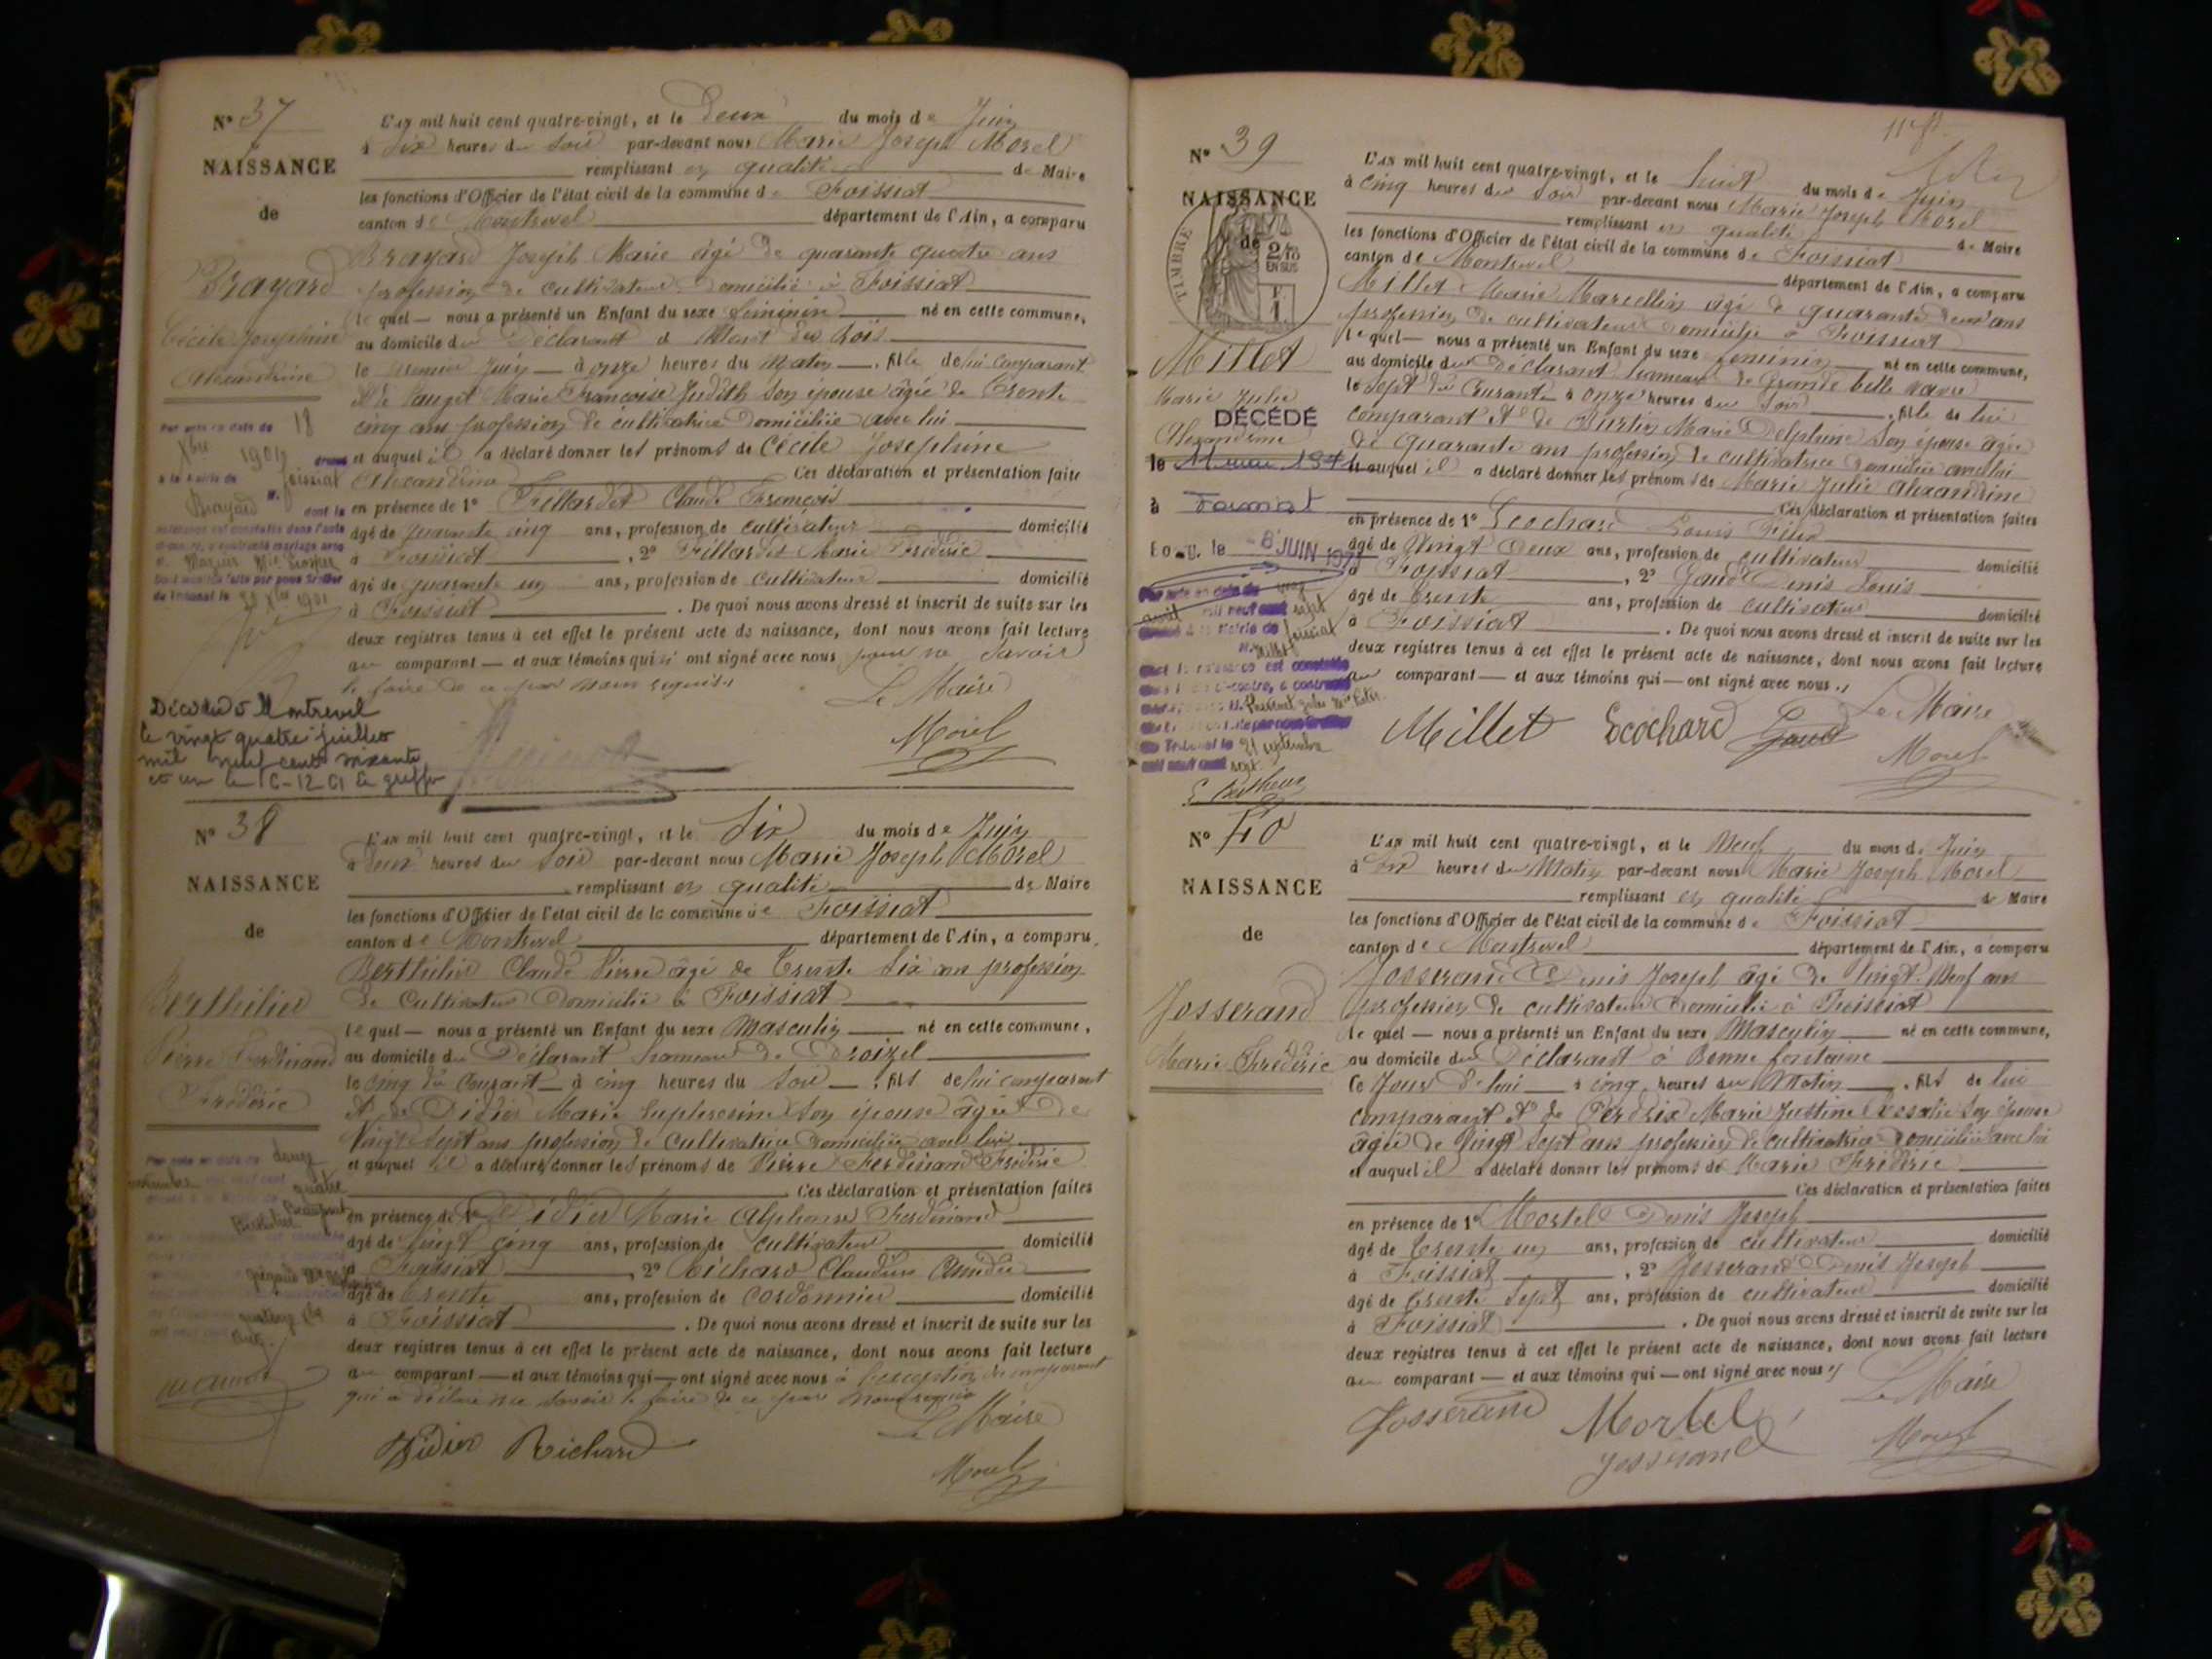 N° 37
NAISSANCE
de
Brayard
Cécile Joséphine
Alexandrine
L'an mil huit cent quatre-vingt, et le Deux du mois de Juin
à Six heures du Soir par-devant nous Marie Joseph Morel
remplissant en qualité de Maire
les fonctions d'Officier de l'état civil de la commune de Foissiat
canton de Montrevel département de l'Ain, a comparu
Brayard Joseph Marie âgé de quarante quatre ans
profession de cultivateur domicilié à Foissiat
lequel — nous a présenté un Enfant du sexe féminin né en cette commune,
au domicile du Déclarant à des bois
le premier Juin à onze heures du Matin, fille de lui comparant
Et de Pauget Marie Françoise Judith son épouse âgée de Trente
cinq ans profession de cultivatrice domiciliée avec lui
et auquel il a déclaré donner les prénoms de Cécile Joséphine
Alexandrine Ces déclaration et présentation faites
en présence de 1° Fillardet Claude François
âgé de quarante cinq ans, profession de cultivateur domicilié
à Foissiat, 2° Fillardet Marie Frédéric
âgé de quarante un ans, profession de cultivateur domicilié
à Foissiat. De quoi nous avons dressé et inscrit de suite sur les
deux registres tenus à cet effet le présent acte de naissance, dont nous avons fait lecture
au comparant — et aux témoins qui ont signé avec nous pour ne savoir
le faire de ce par nous requis
Le Maire
Morel
Par acte en date du 18
Xbre 1901
à la Mairie de Foissiat
Brayard dont la
naissance est constatée dans l'acte
Décédée à Montrevel
le vingt quatre juillet
mil neuf cent soixante
et un le 16-12-61 Le greffier
N° 38
NAISSANCE
de
Berthilier
Pierre Ferdinand
Frédéric
L'an mil huit cent quatre-vingt, et le Six du mois de Juin
à Deux heures du Soir par-devant nous Marie Joseph Morel
remplissant en qualité de Maire
les fonctions d'Officier de l'état civil de la commune de Foissiat
canton de Montrevel département de l'Ain, a comparu
Berthilier Claude Pierre âgé de Trente Six ans profession
de Cultivateur Domicilié à Foissiat
lequel — nous a présenté un Enfant du sexe Masculin né en cette commune,
au domicile du Déclarant hameau de
le cinq du Courant à cinq heures du Soir, fils de lui comparant
Et de Didier Marie son épouse âgée de
Vingt Sept ans profession de cultivatrice domiciliée avec lui
et auquel il a déclaré donner les prénoms de Pierre Ferdinand Frédéric
Ces déclaration et présentation faites
en présence de 1° Didier Marie Alphonse Ferdinand
âgé de Vingt cinq ans, profession de cultivateur domicilié
à Foissiat, 2° Richard Claudius Amédée
âgé de Trente ans, profession de cordonnier domicilié
à Foissiat. De quoi nous avons dressé et inscrit de suite sur les
deux registres tenus à cet effet le présent acte de naissance, dont nous avons fait lecture
au comparant — et aux témoins qui — ont signé avec nous à l'exception du comparant
qui a déclaré ne savoir le faire de ce par nous requis
Le Maire
Didier Richard
Morel
N° 39
NAISSANCE
de
TIMBRE
2/10
EN SUS
Millet
Marie Julie
Alexandrine
DÉCÉDÉ
le
à
le -8 JUIN
L'an mil huit cent quatre-vingt, et le huit du mois de Juin
à Cinq heures du Soir par-devant nous Marie Joseph Morel
remplissant en qualité de Maire
les fonctions d'Officier de l'état civil de la commune de Foissiat
canton de Montrevel département de l'Ain, a comparu
Millet Marie Marcellin âgé de quarante deux ans
profession de cultivateur domicilié à Foissiat
lequel — nous a présenté un Enfant du sexe féminin né en cette commune,
au domicile du Déclarant hameau de Grande belle
le Sept du Courant à onze heures du Soir, fille de lui
comparant Et de Burtin Marie Delphine son épouse âgée
de quarante ans profession de cultivatrice domiciliée avec lui
et auquel il a déclaré donner les prénoms de Marie Julie Alexandrine
Ces déclaration et présentation faites
en présence de 1° Ecochard Louis
âgé de Vingt Deux ans, profession de cultivateur domicilié
à Foissiat, 2° Gaud Denis Louis
âgé de Trente ans, profession de cultivateur domicilié
à Foissiat. De quoi nous avons dressé et inscrit de suite sur les
deux registres tenus à cet effet le présent acte de naissance, dont nous avons fait lecture
au comparant — et aux témoins qui — ont signé avec nous
Le Maire
Millet Ecochard Gaud
Morel
N° 40
NAISSANCE
de
Josserand
Marie Frédéric
L'an mil huit cent quatre-vingt, et le Neuf du mois de Juin
à heures du Matin par-devant nous Marie Joseph Morel
remplissant en qualité de Maire
les fonctions d'Officier de l'état civil de la commune de Foissiat
canton de Montrevel département de l'Ain, a comparu
Josserand Denis Joseph âgé de Vingt Neuf ans
profession de cultivateur Domicilié à Foissiat
lequel — nous a présenté un Enfant du sexe Masculin né en cette commune,
au domicile du Déclarant à Bonne fontaine
le Jour à cinq heures du Matin, fils de lui
comparant Et de Perdrix Marie Justine Rosalie son épouse
âgée de Vingt Sept ans profession de cultivatrice domiciliée avec lui
et auquel il a déclaré donner les prénoms de Marie Frédéric
Ces déclaration et présentation faites
en présence de 1° Mortel Denis Joseph
âgé de Trente un ans, profession de cultivateur domicilié
à Foissiat, 2° Josserand Denis Joseph
âgé de Trente Sept ans, profession de cultivateur domicilié
à Foissiat. De quoi nous avons dressé et inscrit de suite sur les
deux registres tenus à cet effet le présent acte de naissance, dont nous avons fait lecture
au comparant — et aux témoins qui — ont signé avec nous
Le Maire
Josserand Mortel
Josserand
Morel